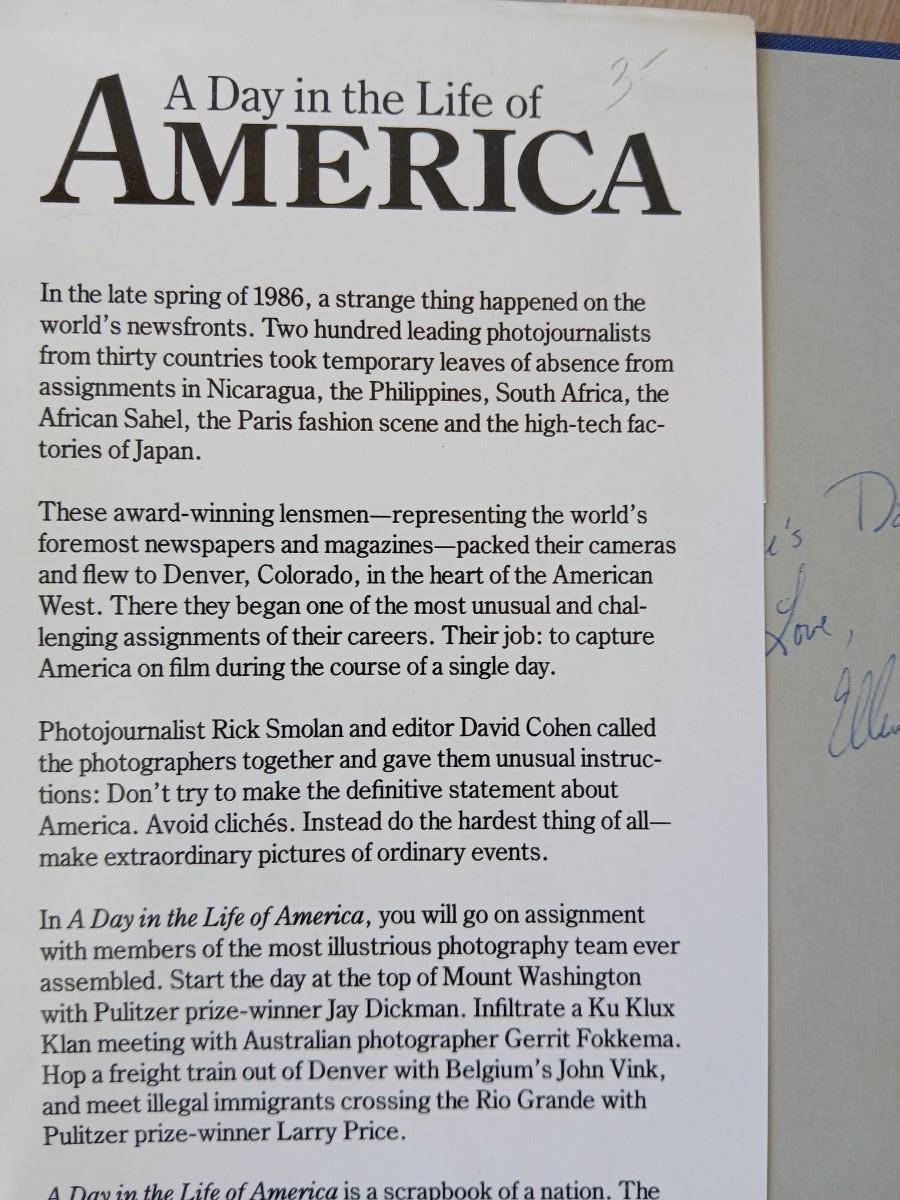 3-
A Day in the Life of
AMERICA
In the late spring of 1986, a strange thing happened on the
world's newsfronts. Two hundred leading photojournalists
from thirty countries took temporary leaves of absence from
assignments in Nicaragua, the Philippines, South Africa, the
African Sahel, the Paris fashion scene and the high-tech fac-
tories of Japan.
These award-winning lensmen—representing the world's
foremost newspapers and magazines—packed their cameras
and flew to Denver, Colorado, in the heart of the American
West. There they began one of the most unusual and chal-
lenging assignments of their careers. Their job: to capture
America on film during the course of a single day.
Photojournalist Rick Smolan and editor David Cohen called
the photographers together and gave them unusual instruc-
tions: Don't try to make the definitive statement about
America. Avoid clichés. Instead do the hardest thing of all—
make extraordinary pictures of ordinary events.
In A Day in the Life of America, you will go on assignment
with members of the most illustrious photography team ever
assembled. Start the day at the top of Mount Washington
with Pulitzer prize-winner Jay Dickman. Infiltrate a Ku Klux
Klan meeting with Australian photographer Gerrit Fokkema.
Hop a freight train out of Denver with Belgium's John Vink,
and meet illegal immigrants crossing the Rio Grande with
Pulitzer prize-winner Larry Price.
A Day in the Life of America is a scrapbook of a nation. The
Love,